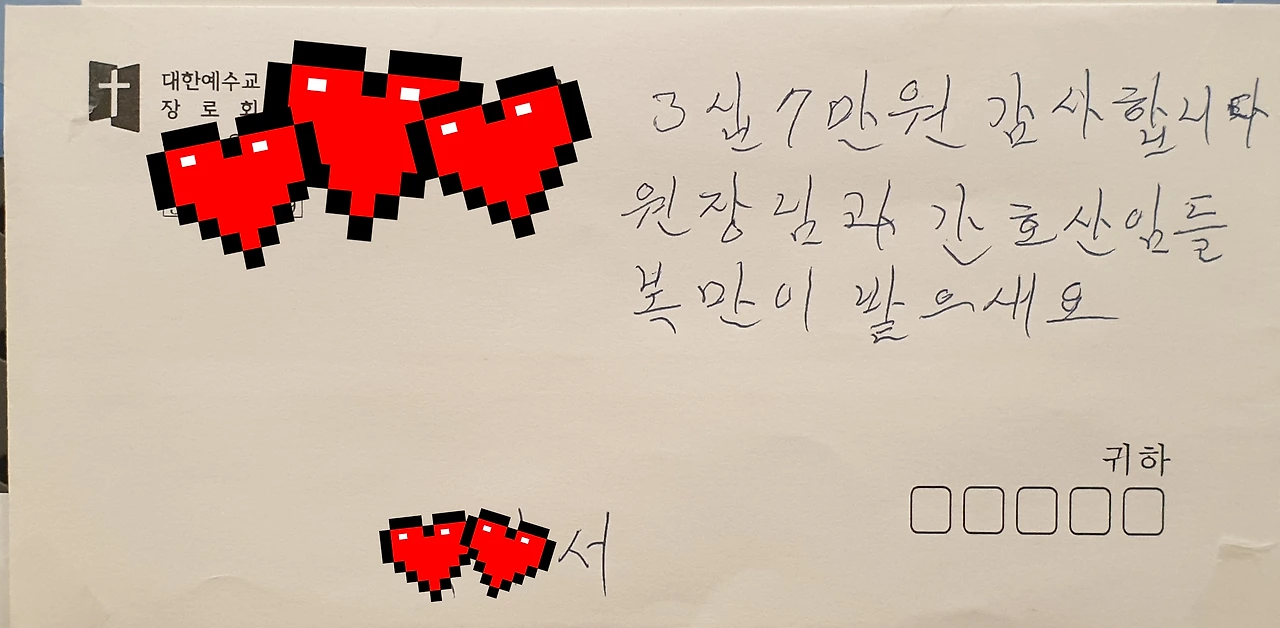 대한예수교
장로회
3십7만원 감사합니다
원장님과 간호산임들
복만이 발으세요
귀하
서